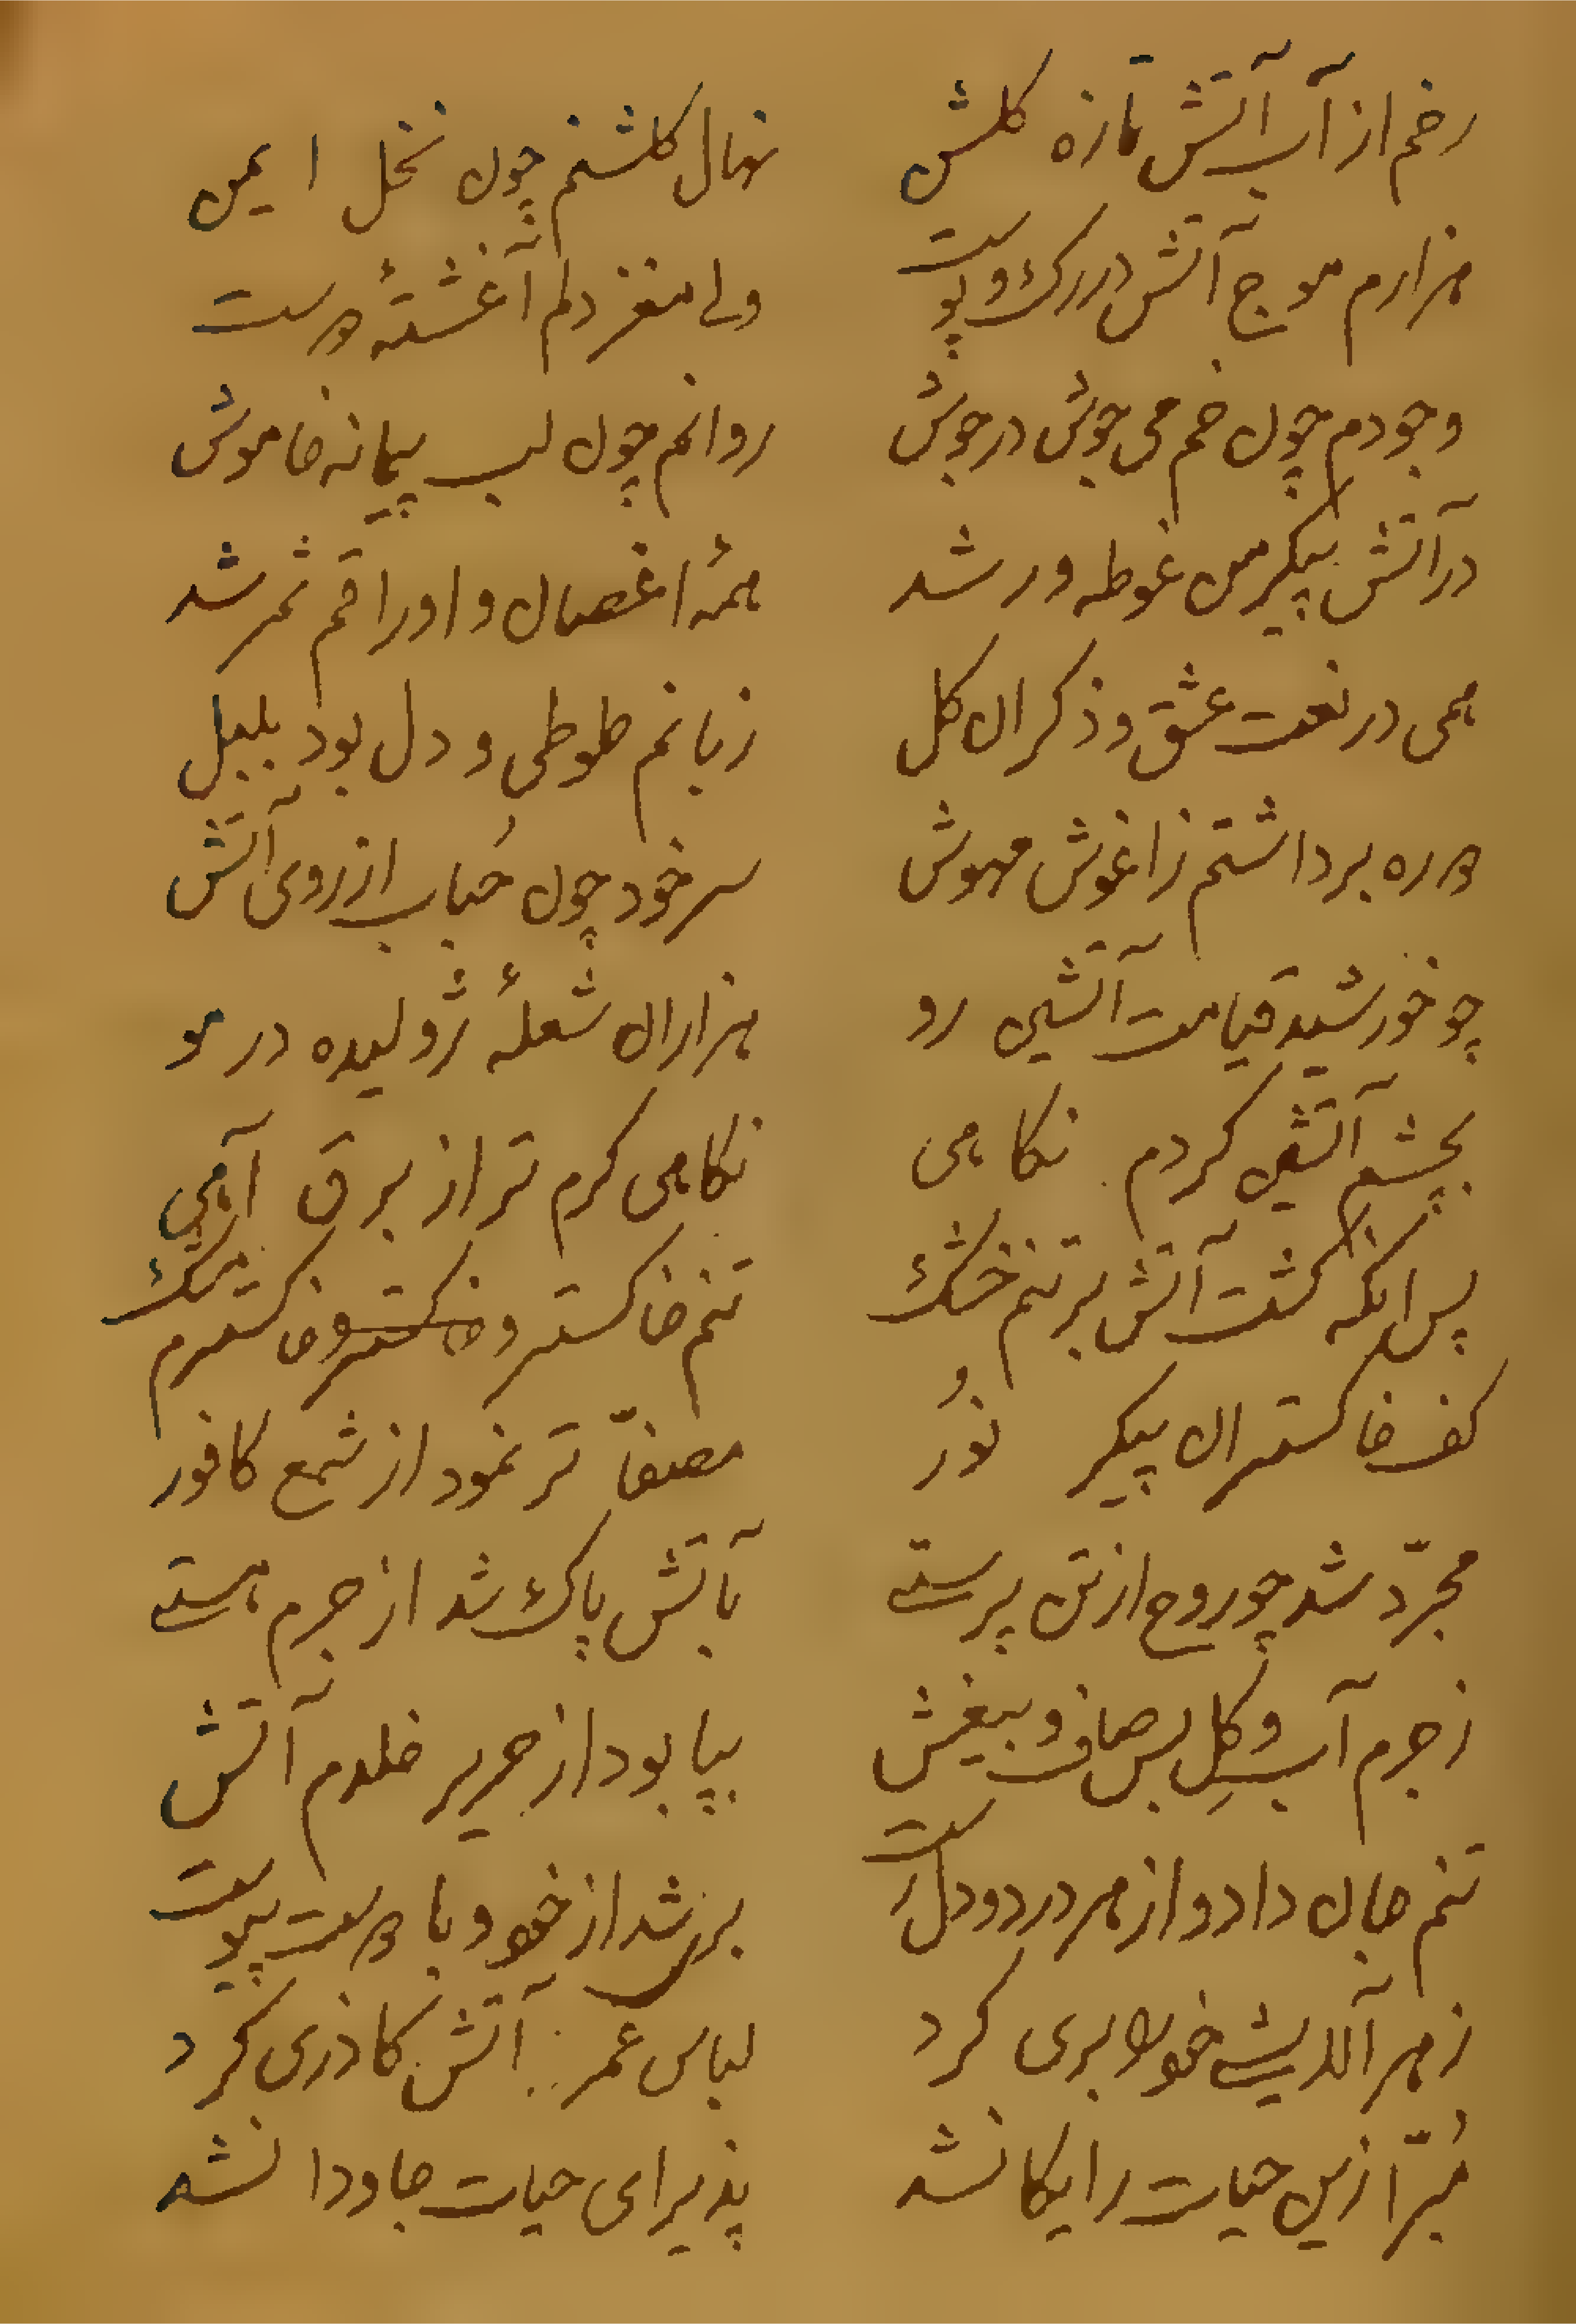 رخم از آب آتش تازه کلشن
نهال کلشنم چون نخل ایمن
هزارم موج آتش در رک و پوست
ولے مغز دلم آغشتهٔ دوست
وجودم چون خم می جوش در جوش
روانم چون لب پیمانه خاموش
در آتش پیکر من غوطه ور شد
همهٔ اغصان و اوراقم ثمر شد
همی در نعت عشق و ذکر ان کل
زبانم طوطی و دل بود بلبل
دو ره برداشتم ز اغوش مهوش
سر خود چون حُباب از روی آتش
چو خورشید قیامت آتشین رو
هزاران شعلهٔ ژولیده در مو
بچشم آتشین کردم نکاهی
نکاهی کرم تر از برق آهی
پس انکه کشت آتش بر تنم خشک
تنم خاکستر و خاکسترم مشک
کف خاکستر ان پیکر نُور
مصفّا تر نمود از شمع کافور
مجرّد شد چو روح از تن پرستے
بآتش پاک شد از جرم هستے
ز جرم آب و کِل بس صاف و بیغش
بپا بود از حریر خلدم آتش
تنم جان داد و از هر درد و دل رست
بری شد از خود و با دوست پیوست
ز هر آلایشے خود را بری کرد
لباس عمر آتش کاذری کرد
مُبرّا زین حیات رایکان شد
پذیرای حیات جاودان شد